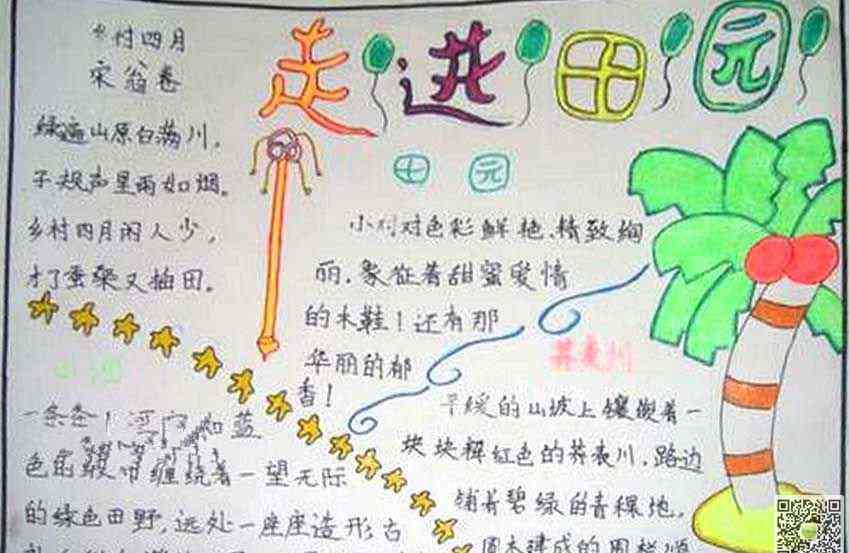 乡村四月
宋翁卷
绿遍山原白满川，
子规声里雨如烟。
乡村四月闲人少，
才了蚕桑又插田。
走进田园
田园
小村对色彩鲜艳、精致绚
丽，象征着甜蜜爱情
的木鞋！还有那
华丽的郁
香！
荞麦川
平缓的山坡上镶嵌着一
块块粉红色的荞麦川，路边
铺着碧绿的青稞地，
圆木建成的围栏
一条条
蓝
色的缎带缠绕着一望无际
的绿色田野，远处一座座造形古